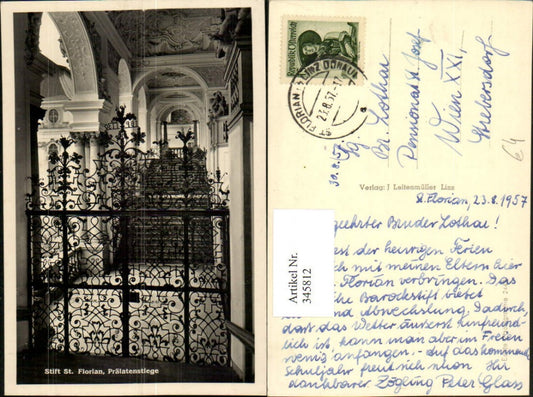 Stift St. Florian, Prälatenstiege
Republik Österreich
ST. FLORIAN
LINZ DONAU
23.8.57
Br. Lothar
Pensionat St. Josef
Wien XXI,
Strebersdorf
30.8.57
€4
Verlag: J Leitenmüller Linz
St. Florian, 23.8.1957
geehrter Bruder Lothar!
est der heurigen Ferien
ch mit meinen Eltern hier
Florian verbringen. Das
che Barockstift bietet
und Abwechslung. Dadurch,
dass das Wetter äußerst unfreund-
lich ist, kann man aber im Freien
wenig anfangen. - Auf das kommende
Schuljahr freut sich nun Ihr
dankbarer Zögling Peter Glass
Artikel Nr.
345812